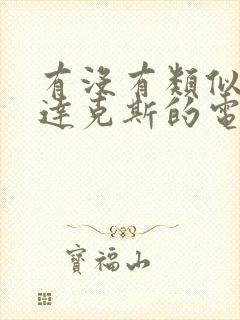 有沒有類似
達克斯的電
寶福山